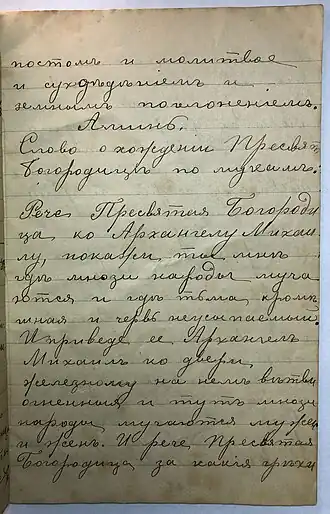 постомъ и молитвое
и сухоѣдѣніемъ и
земнымъ поклоненіемъ.
Аминь.
Слово о хожденіи Пресвят
Богородицъ по мукамъ:
Рече Пресвятая Богороди
ца ко Архангелу Михаи
лу, покажи ты мнѣ
гдѣ мнози народы муча
ются и гдѣ тьма кромѣ
шная и червь неусыпаемый.
И приведе ее Архангелъ
Михаилъ по двери
железному на немъ вѣтви
огненныя и тутъ мнози
народы мучаются мужей
и женъ. И рече Пресвятая
Богородица за какія грѣхи